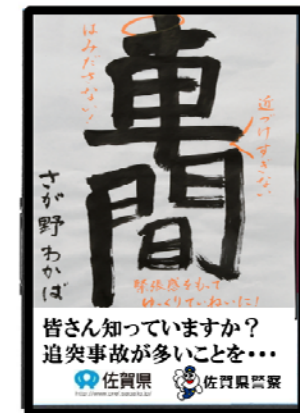 車間
はみださない!
近づけすぎない
さが野 わかば
緊張感をもって
ゆっくりていねいに!
皆さん知っていますか?
追突事故が多いことを・・・
佐賀県
佐賀県警察